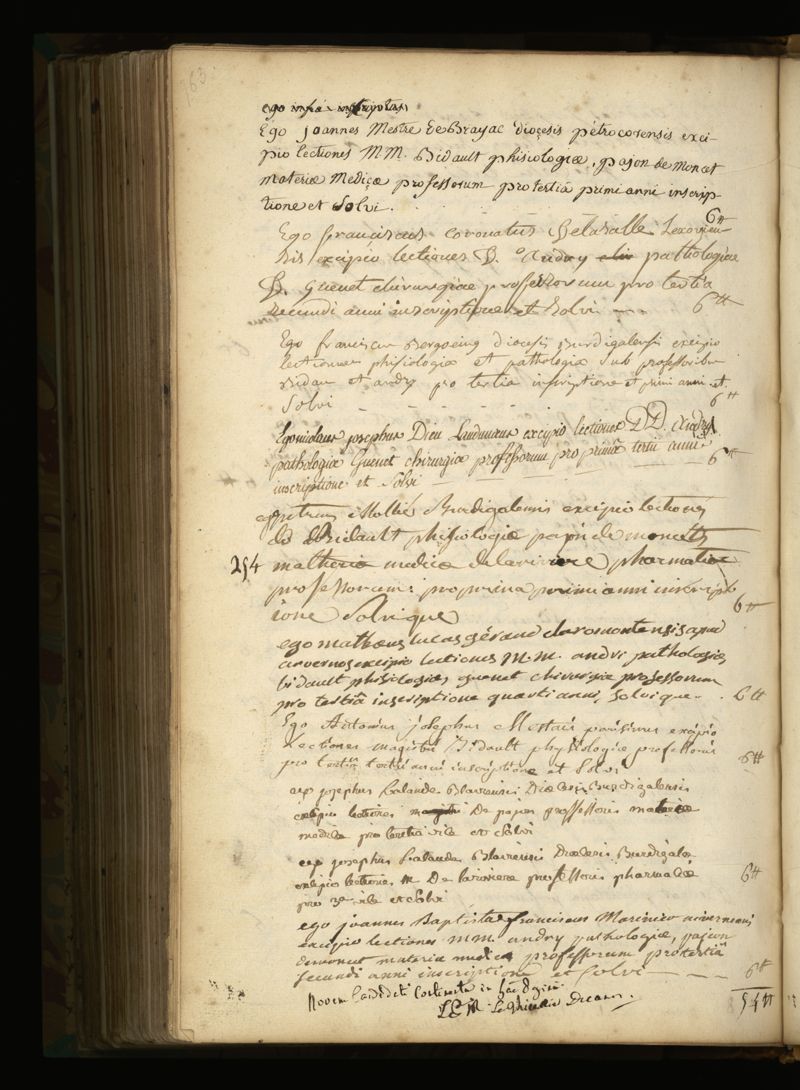 163.
Ego Joannes Mestre de Brayac diocesis petrocorensis exci-
pio lectiones M.M. Bidault phisiologiæ, pajon de Moncet
materiæ Medicæ professorum pro tertiâ primi anni inscrip-
tione et Solvi. 6tt
Ego franciscus coronatus Delasalle Lexovien
sis excipio lectiones D. Andry pathologiæ
D. Guenet chirurgiæ professorum pro tertia
secundi anni inscriptione et Solvi 6tt
Ego franciscus Bergoeing diocesis Burdigalensis excipio
lectiones phisiologiæ et pathologiæ sub professoribus
Bidau et andry pro tertia inscriptione et primi anni et
Solvi 6tt
Ego josephus Dieu excipio lectiones DD. Andry
pathologiæ Guenet chirurgiæ professorum pro primâ tertii anni
inscriptione et Solvi 6tt
ego petrus Mollié Burdigalensis excipio lectiones
dd Bidault phisiologiæ pajon de moncets
254 matheriæ medicæ delariviere pharmatiæ
professorum: pro prima primi anni inscript
ione Solvique 6tt
ego mathæus lucas gérard claromontensis apud
arvernos excipio lectiones M.M. andri pathologiæ,
bidault phisiologiæ, guenet chirurgiæ professorum
pro tertiâ inscriptione quarti anni, solvique. 6tt
Ego Antonius josephus Mestais parisinus excipio
Lectiones magistri Bidault physiologiæ professoris
pro tertiâ tertii anni inscriptione et Solvi 6tt
ego josephus Lalande Blaviensis Diœcesis Burdigalensis
excipio lectiones De pajon professoris materiæ
medicæ pro tertia vice et Solvi
ego josephus Lalande Blaviensis Diœcesis Burdigalen
excipio lectiones M. De lariviere professoris pharmaciæ
pro 3a vice et Solvi 6tt
ego joannes Baptista franciscus Marinier
excipio lectiones m.m. andry pathologiæ, pajon
demoncet materiæ medicæ professorum pro tertiâ
secundi anni inscriptione et Solvi 6tt
Novem Candidati Continentur in hac paginâ 54tt
Le Thieullier Decanus.